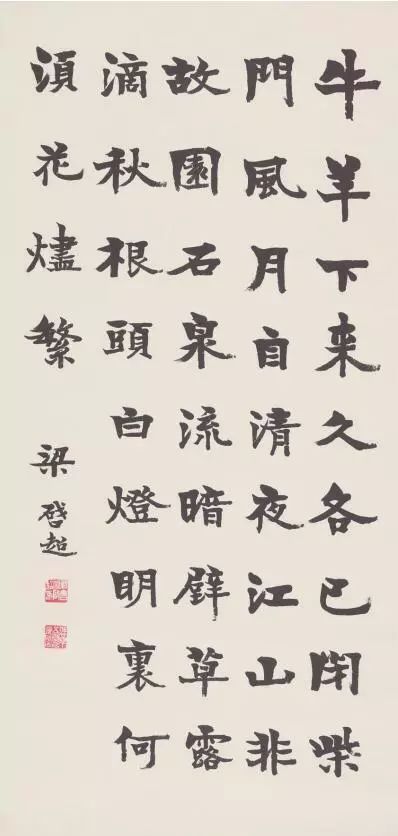 牛羊下来久各已閉柴
門風月自清夜江山非
故園石泉流暗壁草露
滴秋根頭白燈明裏何
湏花燼繁 梁啓超